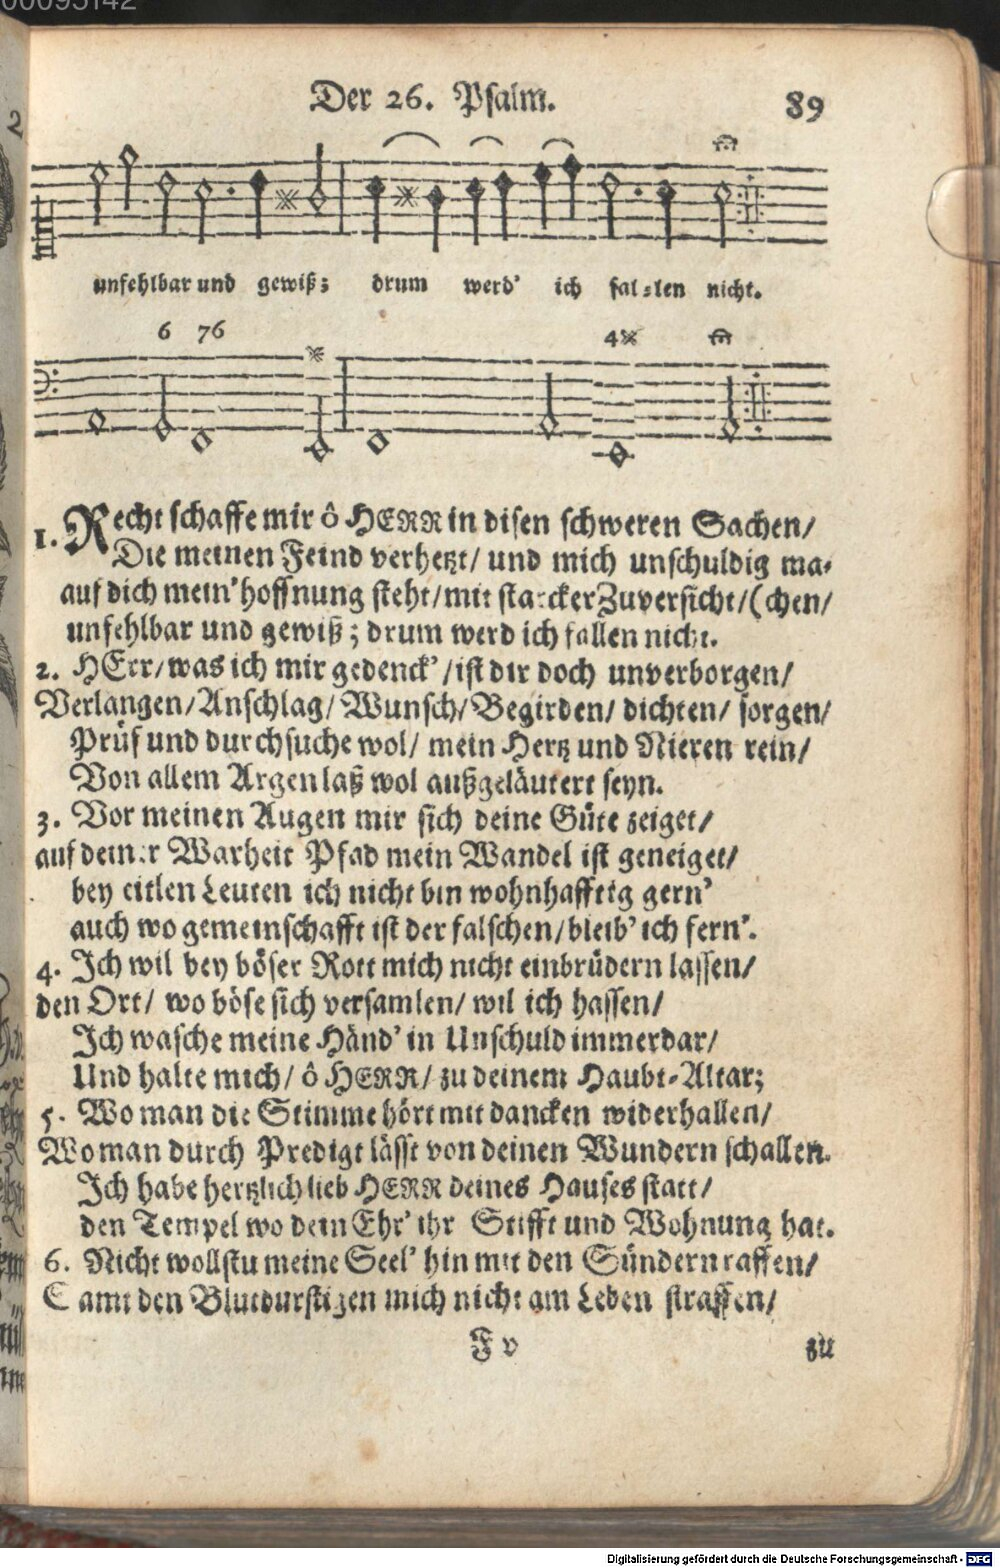 00095142
Der 26. Psalm. 89
unfehlbar und gewiß; drum werd' ich fal-len nicht.
6 76 4
1. Recht schaffe mir ô HERR in disen schweren Sachen/
Die meinen Feind verhetzt/ und mich unschuldig ma-
auf dich mein' hoffnung steht/ mit starcker Zuversicht/ (chen/
unfehlbar und gewiß; drum werd ich fallen nicht.
2. HErr/ was ich mir gedenck'/ ist dir doch unverborgen/
Verlangen/ Anschlag/ Wunsch/ Begirden/ dichten/ sorgen/
Prüf und durchsuche wol/ mein Hertz und Nieren rein/
Von allem Argen laß wol außgeläutert seyn.
3. Vor meinen Augen mir sich deine Güte zeiget/
auf deiner Warheit Pfad mein Wandel ist geneiget/
bey eitlen Leuten ich nicht bin wohnhafftig gern'
auch wo gemeinschafft ist der falschen/ bleib' ich fern'.
4. Ich wil bey böser Rott mich nicht einbrüdern lassen/
den Ort/ wo böse sich versamlen/ wil ich hassen/
Ich wasche meine Händ' in Unschuld immerdar/
Und halte mich/ ô HERR/ zu deinem Haubt-Altar;
5. Wo man die Stimme hört mit dancken widerhallen/
Wo man durch Predigt lässt von deinen Wundern schallen.
Ich habe hertzlich lieb HERR deines Hauses statt/
den Tempel wo dein Ehr' ihr Stifft und Wohnung hat.
6. Nicht wollstu meine Seel' hin mit den Sündern raffen/
Samt den Blutdurstigen mich nicht am Leben straffen/
F v zu
Digitalisierung gefördert durch die Deutsche Forschungsgemeinschaft - DFG